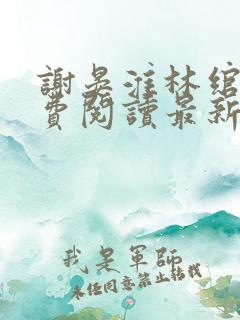 謝吳淮林綰
費閱讀最新
我是軍師
未經同意禁止轉載